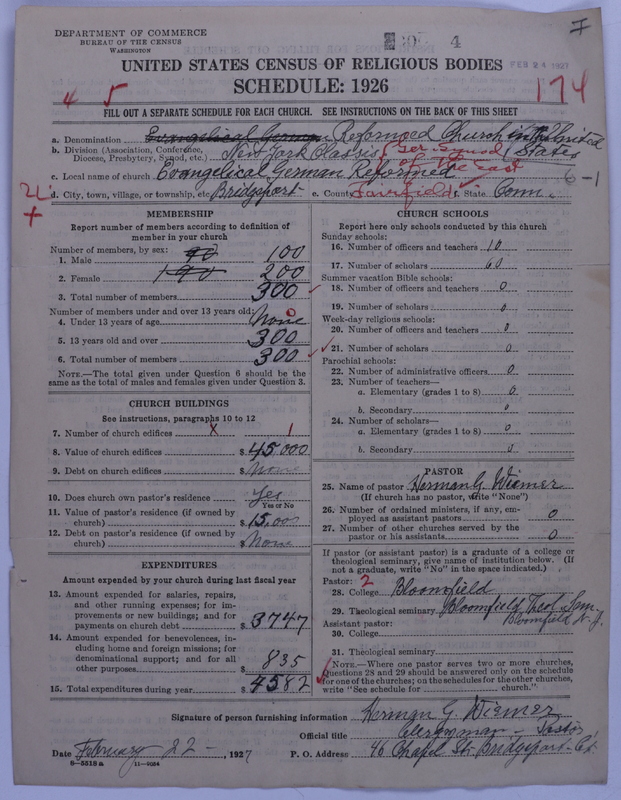 DEPARTMENT OF COMMERCE
BUREAU OF THE CENSUS
WASHINGTON
4
FEB 24 1927
UNITED STATES CENSUS OF RELIGIOUS BODIES
SCHEDULE: 1926
174
4 5
FILL OUT A SEPARATE SCHEDULE FOR EACH CHURCH. SEE INSTRUCTIONS ON THE BACK OF THIS SHEET
a. Denomination Evangelical German Reformed Church in the United States
b. Division (Association, Conference, Diocese, Presbytery, Synod, etc.) New York Classis (Ger. Synod of the East
c. Local name of church Evangelical German Reformed
6-1
d. City, town, village, or township, etc. Bridgeport e. County Fairfield f. State Conn.
MEMBERSHIP
Report number of members according to definition of
member in your church
Number of members, by sex:
1. Male 100
2. Female 190 200
3. Total number of members 300
Number of members under and over 13 years old:
4. Under 13 years of age None 0
5. 13 years old and over 300
6. Total number of members 300
NOTE.—The total given under Question 6 should be
same as the total of males and females given under Question 3.
CHURCH BUILDINGS
See instructions, paragraphs 10 to 12
7. Number of church edifices x 1
8. Value of church edifices $ 45,000
9. Debt on church edifices $ None
10. Does church own pastor's residence Yes
Yes or No
11. Value of pastor's residence (if owned by
church) $ 15,000
12. Debt on pastor's residence (if owned by
church) $ None
EXPENDITURES
Amount expended by your church during last fiscal year
13. Amount expended for salaries, repairs,
and other running expenses; for im-
provements or new buildings; and for
payments on church debt $ 3747
14. Amount expended for benevolences, in-
cluding home and foreign missions; for
denominational support; and for all
other purposes $ 835
15. Total expenditures during year $ 4582
CHURCH SCHOOLS
Report here only schools conducted by this church
Sunday schools:
16. Number of officers and teachers 10
17. Number of scholars 60
Summer vacation Bible schools:
18. Number of officers and teachers 0
19. Number of scholars 0
Week-day religious schools:
20. Number of officers and teachers 0
21. Number of scholars 0
Parochial schools:
22. Number of administrative officers 0
23. Number of teachers—
a. Elementary (grades 1 to 8) 0
b. Secondary 0
24. Number of scholars—
a. Elementary (grades 1 to 8) 0
b. Secondary 0
PASTOR
25. Name of pastor Herman G. Wiemer
(If church has no pastor, write "None")
26. Number of ordained ministers, if any, em-
ployed as assistant pastors 0
27. Number of other churches served by the
pastor or his assistants 0
If pastor (or assistant pastor) is a graduate of a college or
theological seminary, give name of institution below. (If
not a graduate, write "No" in the space indicated.)
Pastor: 2
28. College Bloomfield
29. Theological seminary Bloomfield Theol. Sem.
Bloomfield N. J.
Assistant pastor:
30. College
31. Theological seminary
NOTE.—Where one pastor serves two or more churches,
Questions 28 and 29 should be answered only on the schedule
for one of the churches; on the schedules for the other churches,
write "See schedule for church."
Signature of person furnishing information Herman G. Wiemer
Official title Clergyman - Pastor
Date February 22 - 1927 P. O. Address 46 Chapel St. Bridgeport - Ct.
8-5518a 11-9084